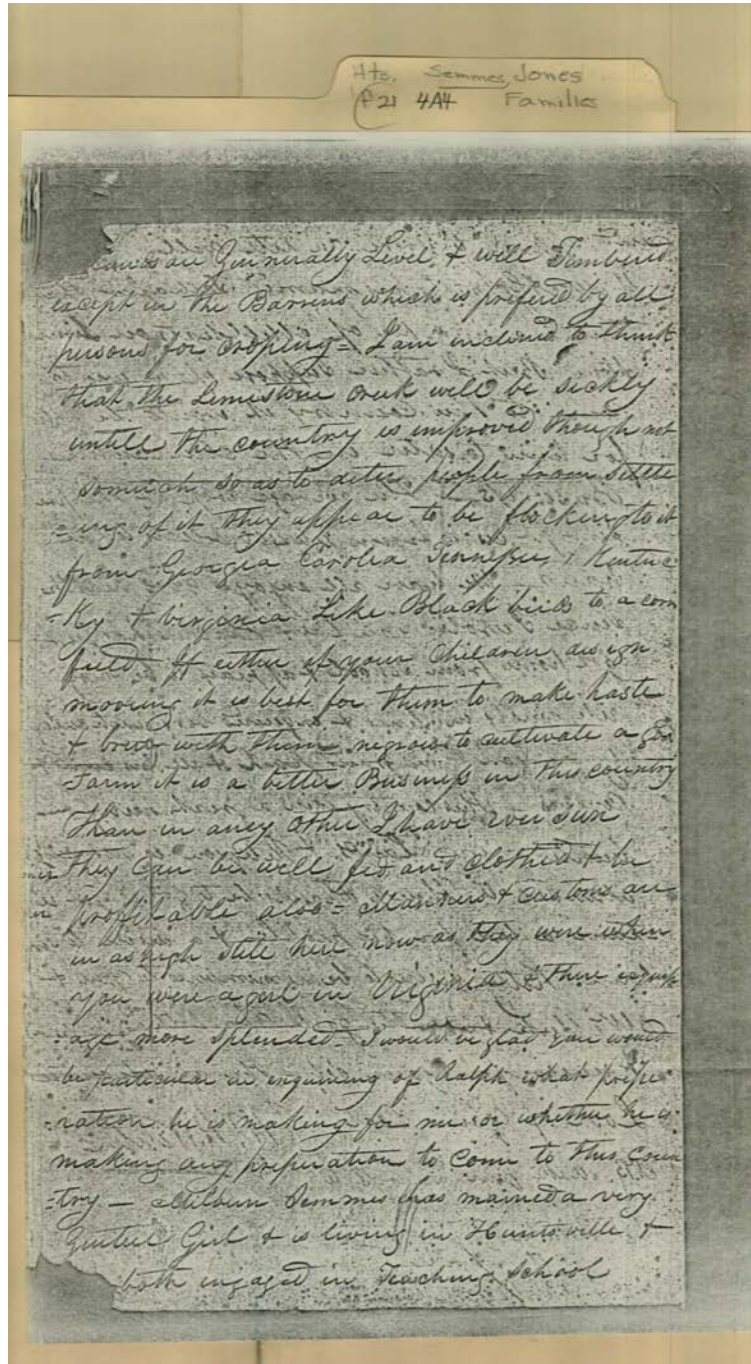 Hts. Semmes, Jones
P21 4A4 Families
are Generally Level & well Timbered
except in the Barrens which is prefered by all
persons for croping = I am inclined to think
that the Limestone Creek will be sickly
untill the country is improved though not
somuch so as to deter people from settle
=ing of it they appear to be flocking to it
from Georgia Carolea Tennessee, Kentuc
=ky & Virginia Like Black birds to a corn
field If either of your Children design
mooving it is best for them to make haste
& with them negroes to cultivate a
Farm it is a better Business in this country
than in aney other I have ever seen
they can be well fed and Clothed & be
proffitable also = Manners & customs are
in as high stile here now as they were when
you were a girl in Virginia &
=age more splended = I would be glad you would
be particular in enquiring of Ralph what prepe
=ration he is making for me or whether he is
making any preperation to come to this coun
=try — Semmes has married a very
Genteel Girl & is living in Huntsville &
both engaged in Teaching School